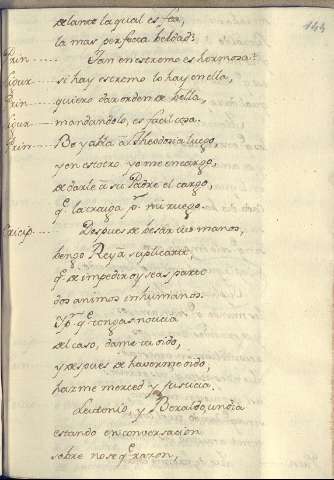 144
delante la qual es fea,
la mas perfecta beldad?
Prin...... Tan en estremo es hermosa?
Lisar...... si hay estremo lo hay en ella,
Prin...... quiero dar orden de vella,
Lisar...... mandandolo, es facil cosa.
Prin...... Vo y abla à Theodosia luego,
y en estotro yo me encargo,
de darle à su Padre el cargo,
q.e la traiga p.r mi ruego.
Despues de besar tus manos,
bengo Rey à suplicarte,
q.e de impedir oy seas parte
dos animos inhumanos.
Y p.r q.e tengas noticia
del caso, dame tu oido,
y despues de haverme oido,
hazme merced y justicia.
Leudenio, y Beraldo, un dia
estando en conversacion
sobre no se q.e razon,